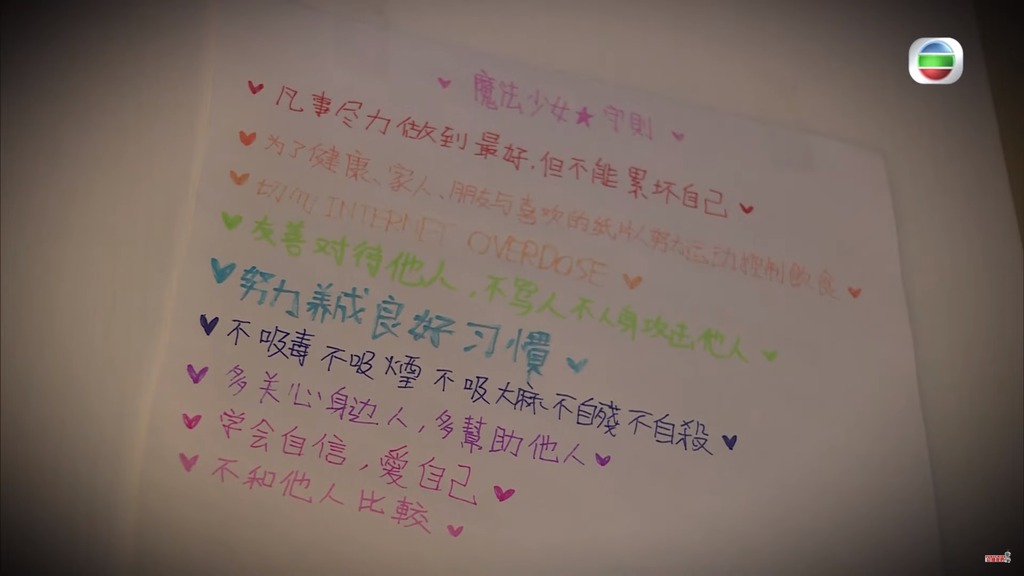 魔法少女★守則
凡事尽力做到最好.但不能累坏自己
为了健康、家人、朋友与喜欢的纸片人努力运动控制飲食
切勿INTERNET OVERDOSE
友善对待他人,不骂人不人身攻击他人
努力养成良好习慣
不吸毒不吸煙不吸大麻不自殘不自殺
多关心身边人,多幫助他人
学会自信,愛自己
不和他人比較